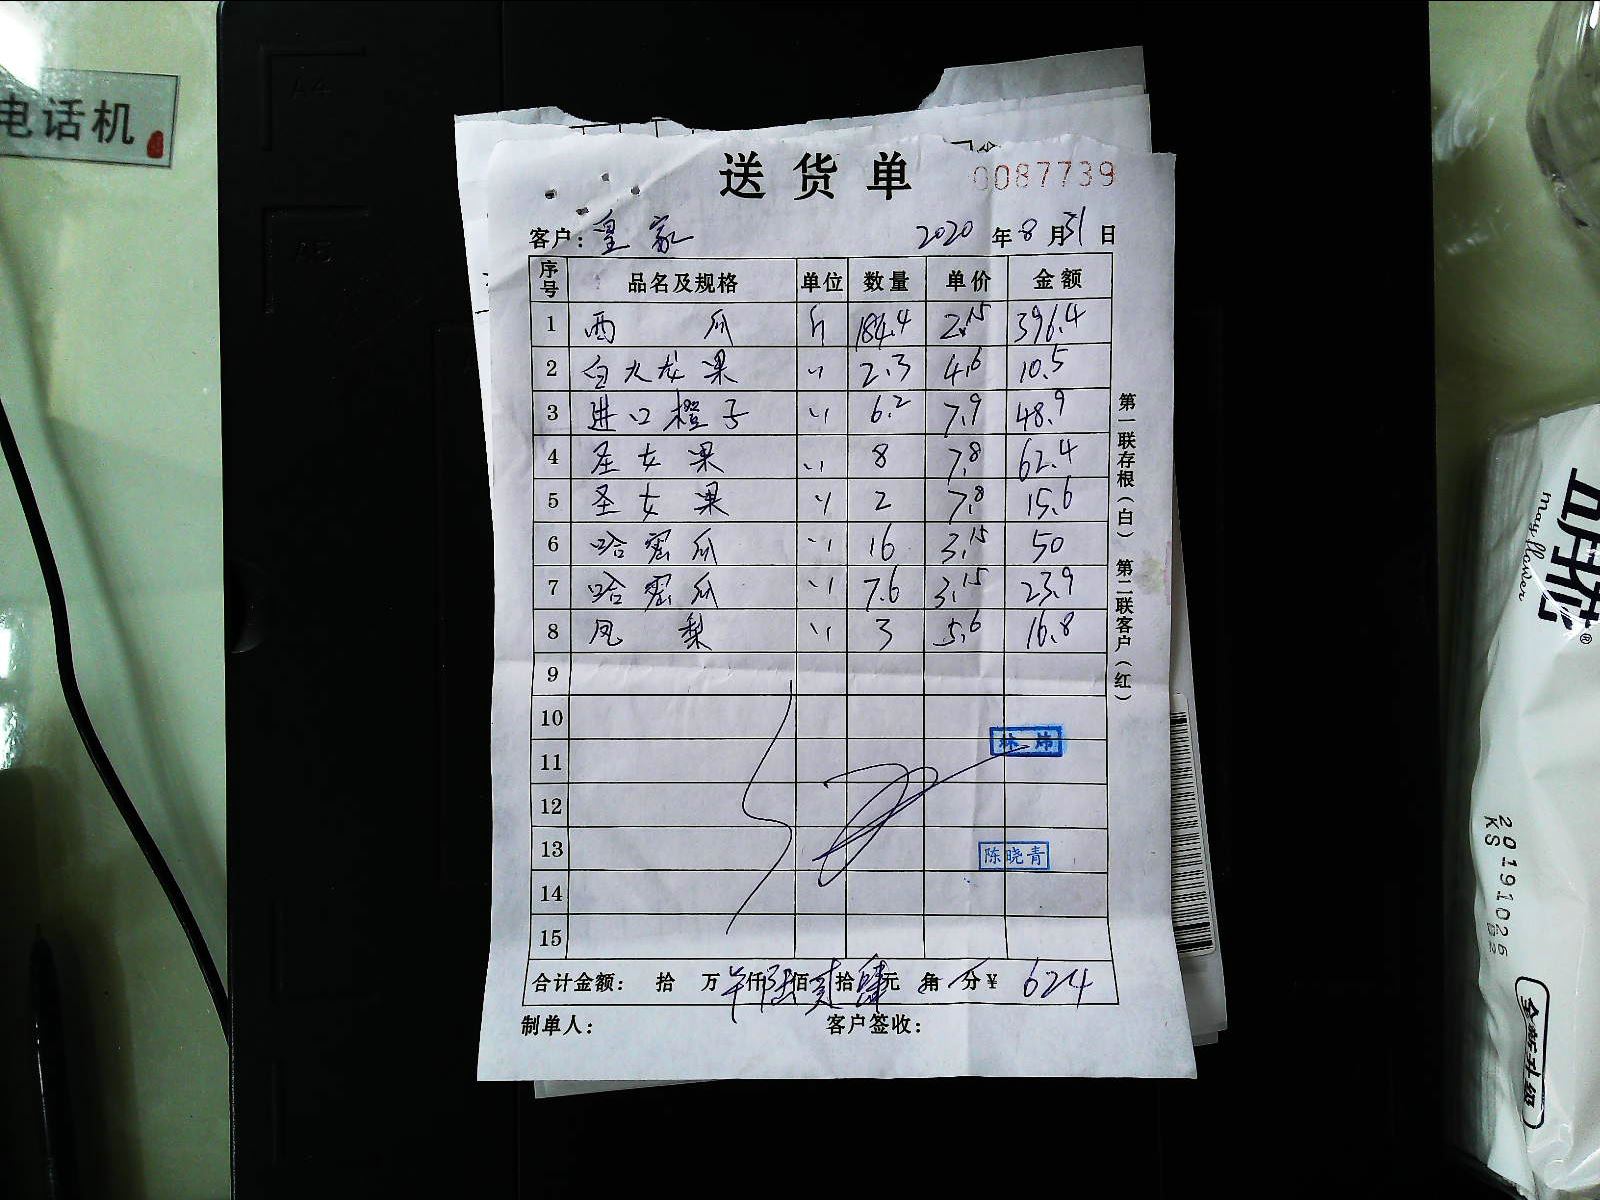 电话机
送货单 0087739
客户：皇家 2020年8月31日
序号 品名及规格 单位 数量 单价 金额
1 西瓜 斤 184.4 2.15 396.4
2 白火龙果 〃 2.3 4.6 10.5
3 进口橙子 〃 6.2 7.9 48.9
4 圣女果 〃 8 7.8 62.4
5 圣女果 〃 2 7.8 15.6
6 哈密瓜 〃 16 3.15 50
7 哈密瓜 〃 7.6 3.15 23.9
8 凤梨 〃 3 5.6 16.8
9
10
11
12
13 陈晓青
14
15
合计金额： 拾 万 仟陆佰贰拾肆元 角 分 ¥ 624
制单人： 客户签收：
第一联存根（白） 第二联客户（红）
花®
Mayflower
20191026
KS
全新升级
A4
A5